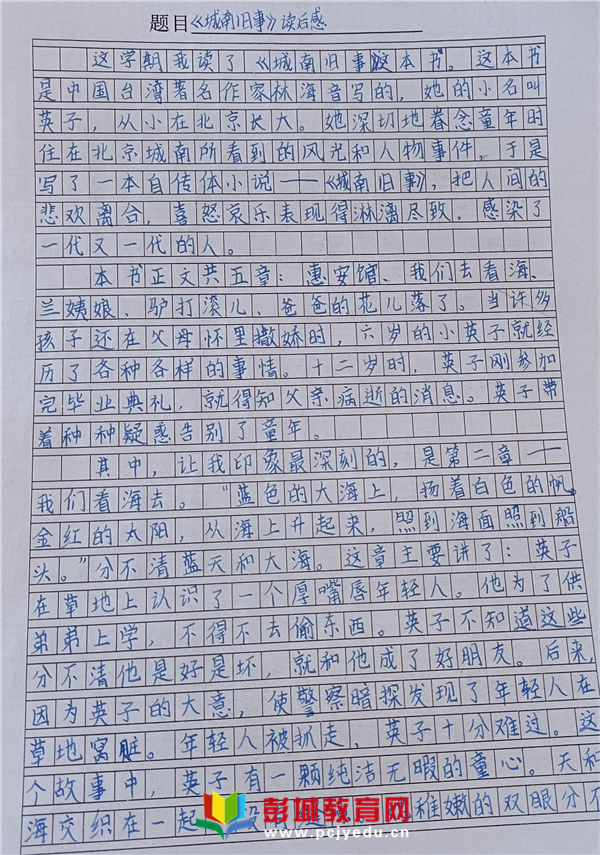 题目《城南旧事》读后感
这学期我读了《城南旧事》这本书。这本书
是中国台湾著名作家林海音写的，她的小名叫
英子，从小在北京长大。她深切地眷念童年时
住在北京城南所看到的风光和人物事件，于是
写了一本自传体小说——《城南旧事》，把人间的
悲欢离合，喜怒哀乐表现得淋漓尽致，感染了
一代又一代的人。
本书正文共五章：惠安馆、我们去看海、
兰姨娘、驴打滚儿、爸爸的花儿落了。当许多
孩子还在父母怀里撒娇时，六岁的小英子就经
历了各种各样的事情。十二岁时，英子刚参加
完毕业典礼，就得知父亲病逝的消息。英子带
着种种疑惑告别了童年。
其中，让我印象最深刻的，是第二章——
我们看海去。“蓝色的大海上，扬着白色的帆。
金红的太阳，从海上升起来，照到海面照到船
头。”分不清蓝天和大海。这章主要讲了：英子
在草地上认识了一个厚嘴唇年轻人。他为了供
弟弟上学，不得不去偷东西。英子不知道这些
分不清他是好是坏，就和他成了好朋友。后来，
因为英子的大意，使警察暗探发现了年轻人在
草地窝赃。年轻人被抓走，英子十分难过。这
个故事中，英子有一颗纯洁无暇的童心。天和
海交织在一起 稚嫩的双眼分不
彭城教育网
www.pcjyedu.cn